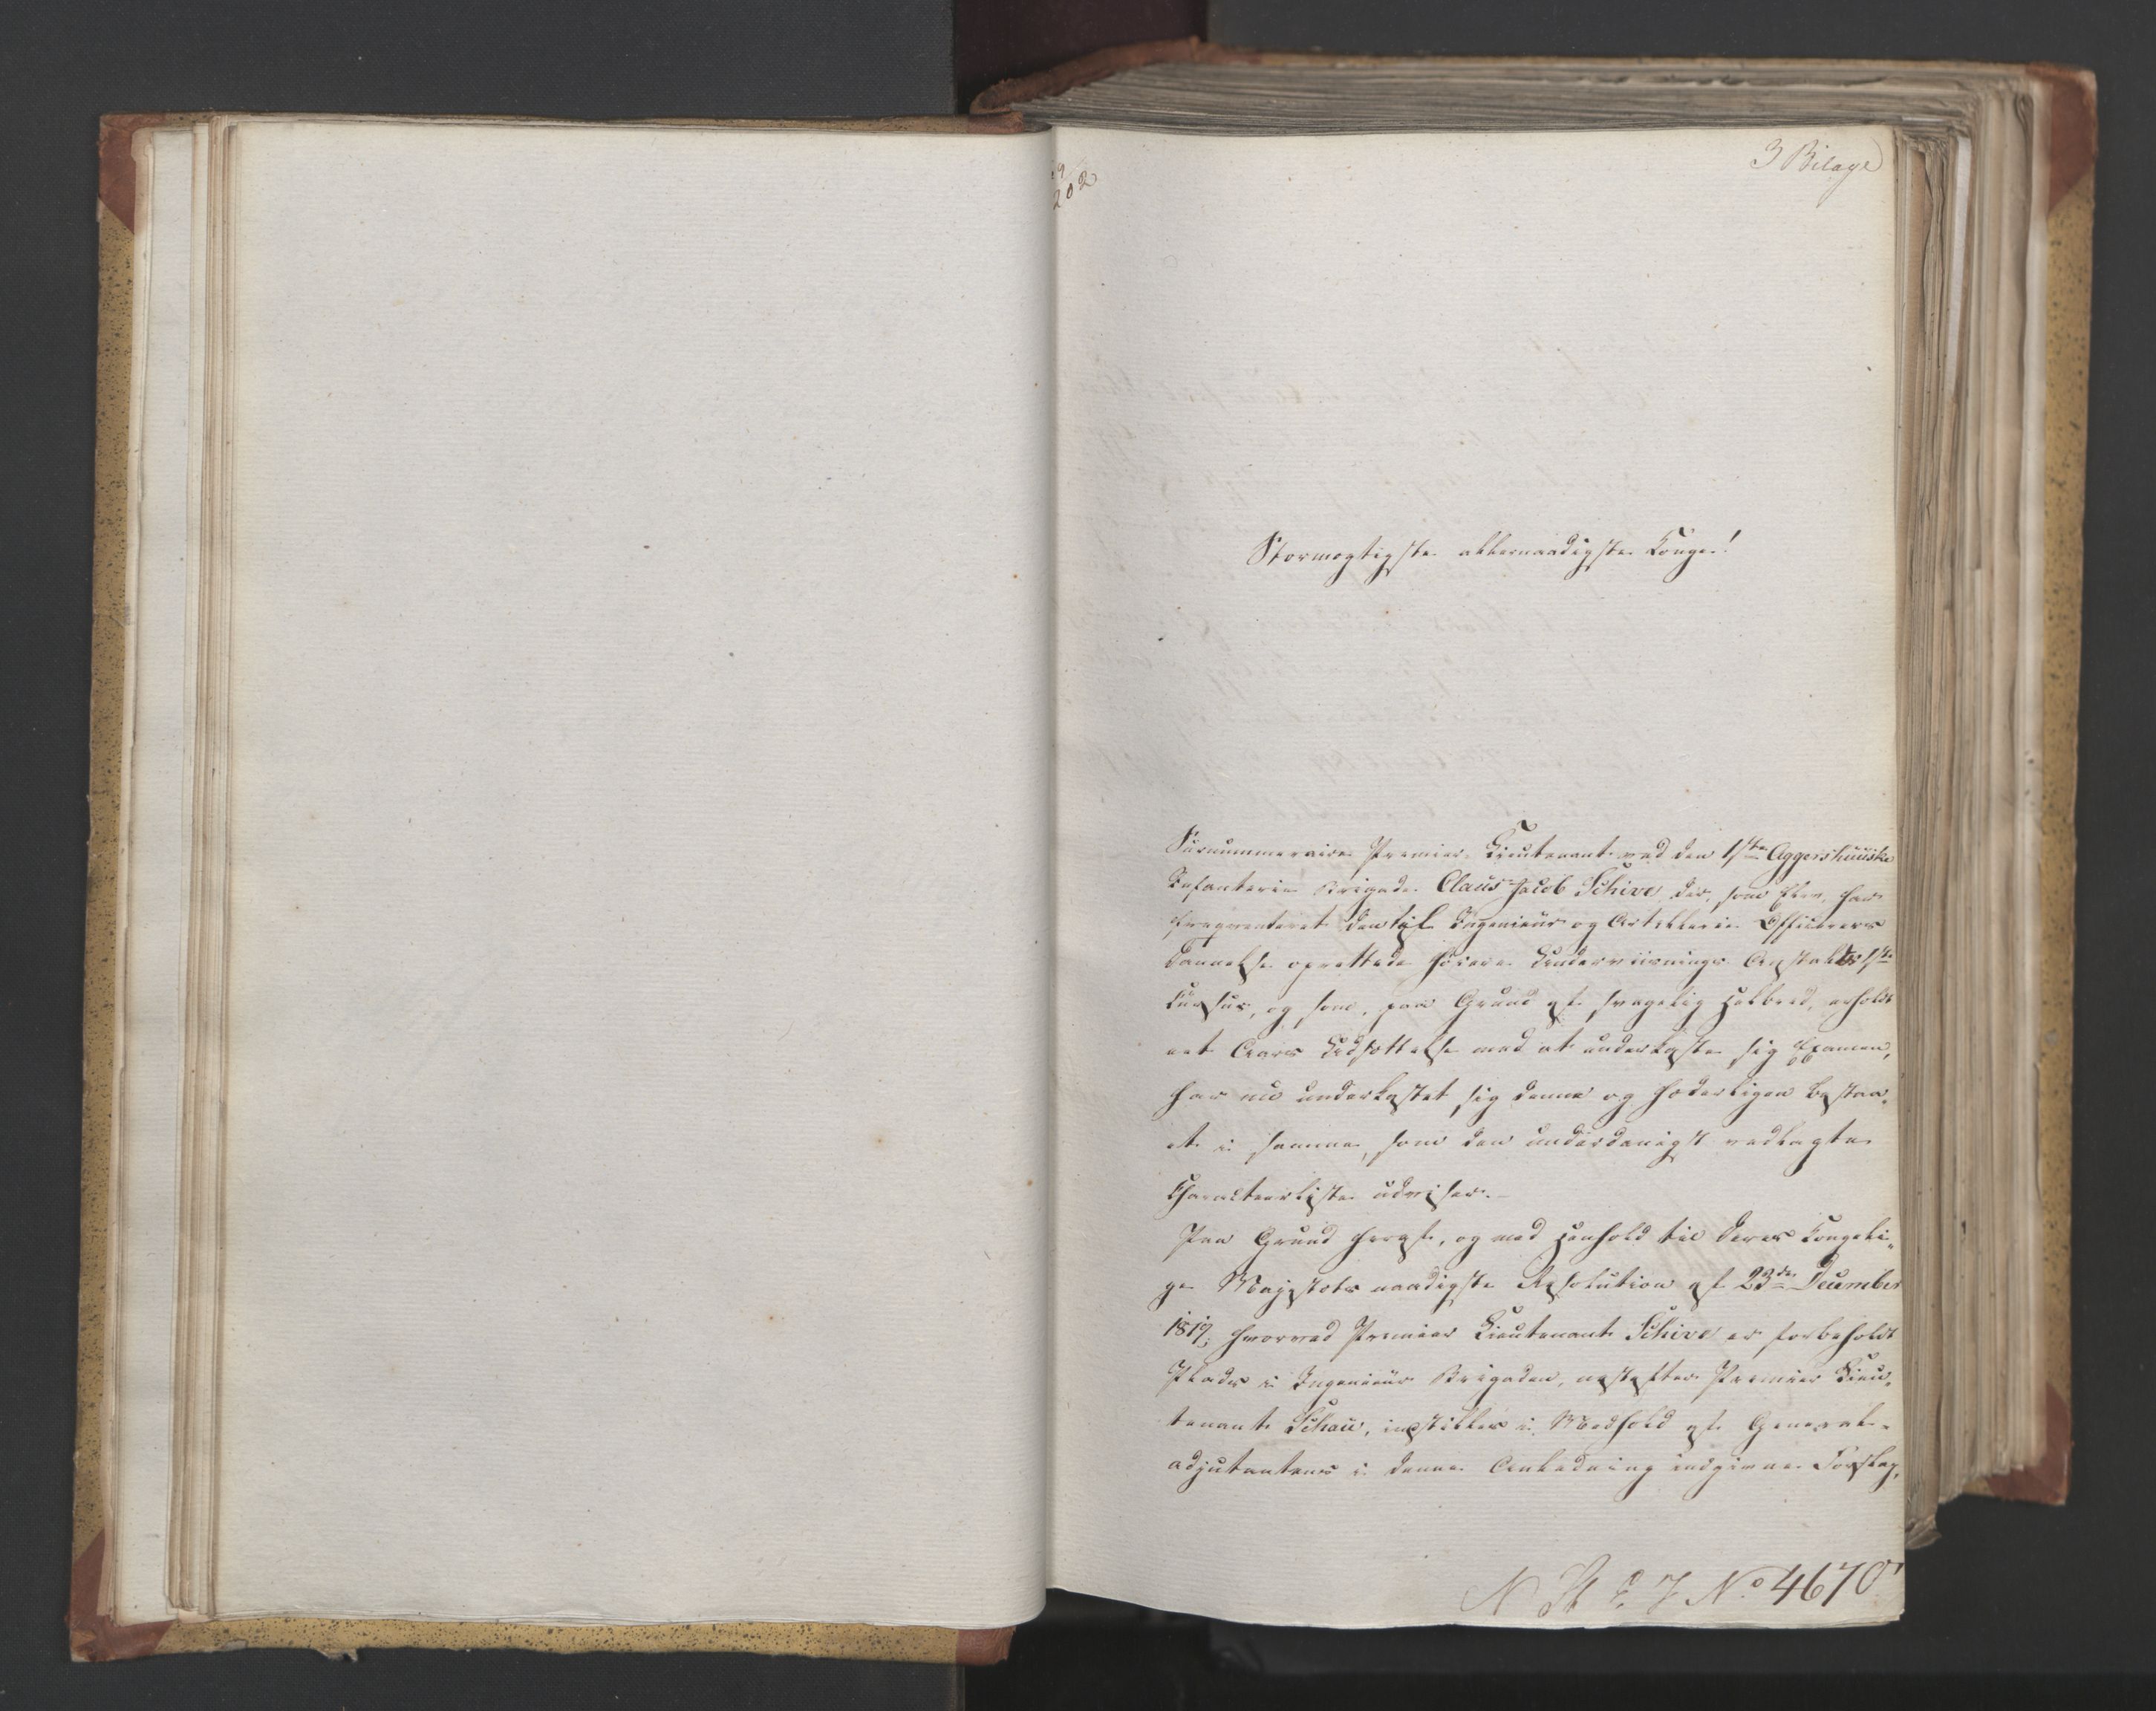 3 Bilage
202
Stormægtigste allernaadigste Konge!
Surnummeraire Premier Lieutenant ved den 1ste Aggershuuske
Infanterie Brigade Claus Jacob Schive, der, som Elev, har
freqventeret den til Ingenieur og Artillerie Officerers
Dannelse oprettede høiere Underviisnings Anstalts 1ste
Cursus, og som, paa Grund af svagelig Helbred, erholdt
eet Aars Udsættelse med at underkaste sig Examen,
har nu underkastet sig denne og hæderligen bestaa-
et i samme, som den underdanigst vedlagte
Characteerliste udviser.
Paa Grund heraf, og med Henhold til Deres Kongeli-
ge Majestæts naadigste Resolution af 23de December
1819, hvorved Premier Lieutenant Schive er forbeholdt
Plads i Ingenieur Brigaden, næstefter Premier Lieu-
tenant Schau, indstilles i Medhold af General-
adjutantens i denne Anledning indgivne Forslag,
N St E J No 4670